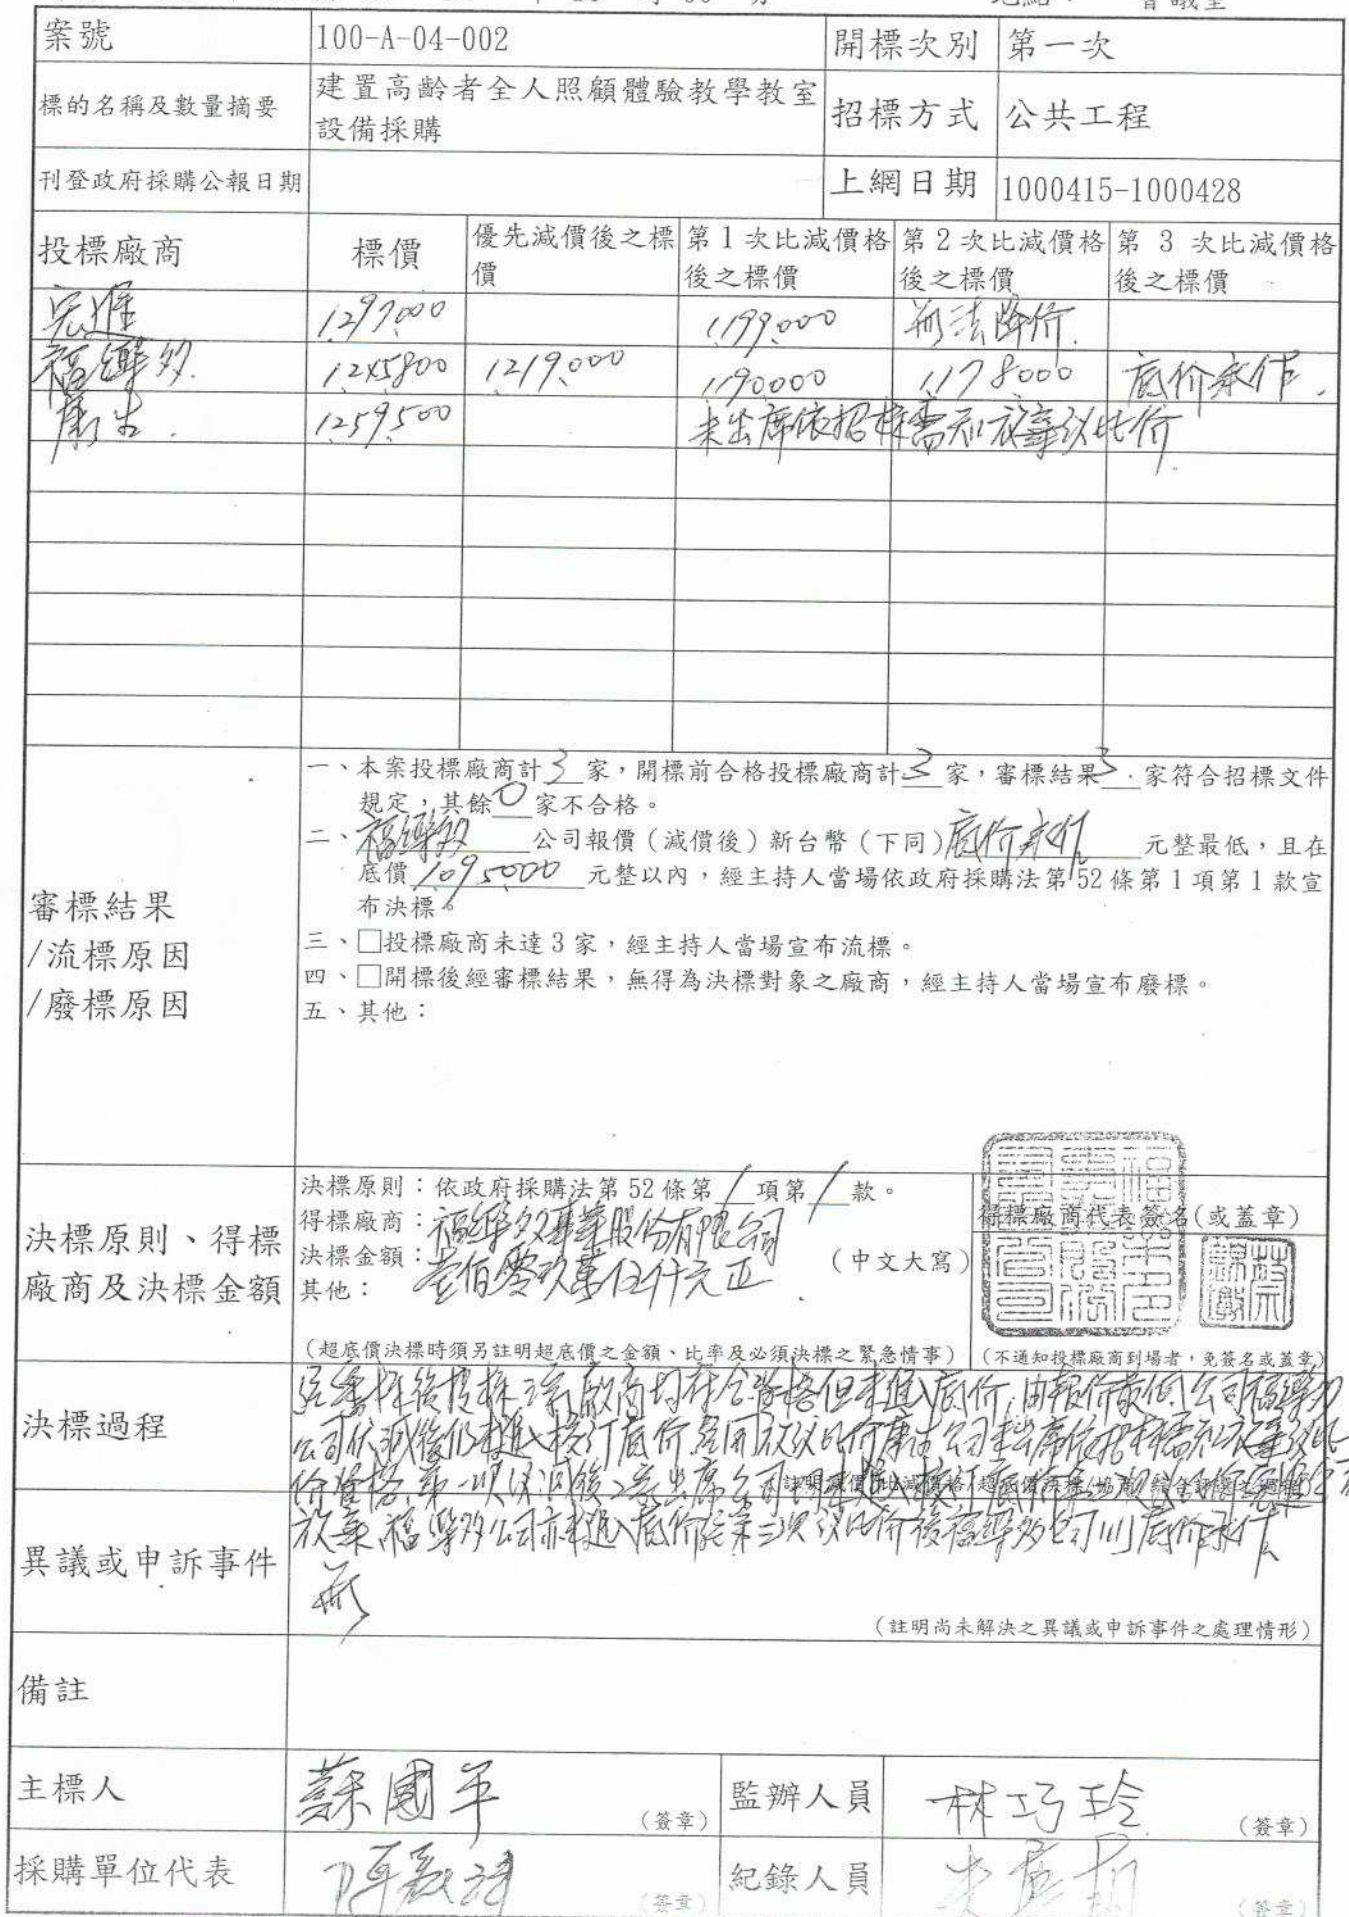 案號 100-A-04-002 開標次別 第一次
標的名稱及數量摘要 建置高齡者全人照顧體驗教學教室 招標方式 公共工程
設備採購
刊登政府採購公報日期 上網日期 1000415-1000428
投標廠商 標價 優先減價後之標價 第1次比減價格後之標價 第2次比減價格後之標價 第 3 次比減價格後之標價
宏進 1,297,000 1,199,000 無法降价.
福樂多. 1,245,800 1,219,000 1,190,000 1,178,000 底价承作.
康生. 1,259,500 未出席依招標需知放棄議比价.
審標結果
/流標原因
/廢標原因
一、本案投標廠商計 3 家,開標前合格投標廠商計 3 家,審標結果 3 家符合招標文件
規定,其餘 0 家不合格。
二、福樂多 公司報價(減價後)新台幣(下同)底价承作 元整最低,且在
底價 1,095,000 元整以內,經主持人當場依政府採購法第52條第1項第1款宣
布決標。
三、□投標廠商未達3家,經主持人當場宣布流標。
四、□開標後經審標結果,無得為決標對象之廠商,經主持人當場宣布廢標。
五、其他:
決標原則、得標
廠商及決標金額
決標原則:依政府採購法第 52 條第 1 項第 1 款。
得標廠商:福樂多事業股份有限公司
決標金額:壹佰零玖萬伍仟元正 (中文大寫)
其他:
(超底價決標時須另註明超底價之金額、比率及必須決標之緊急情事)
得標廠商代表簽名(或蓋章)
(不通知投標廠商到場者,免簽名或蓋章)
決標過程
廠商均符合資格但未進入底价,由報价最低公司福樂多
公司優減後仍未進入核訂底价 康生公司未出席依招標需知放棄議比
价資格.
放棄,福樂多公司亦未進入底价經第三次議比价後福樂多公司以底价承作
異議或申訴事件
無
(註明尚未解決之異議或申訴事件之處理情形)
備註
主標人 蘇國平 (簽章) 監辦人員 林巧玲 (簽章)
採購單位代表 (簽章) 紀錄人員 (簽章)